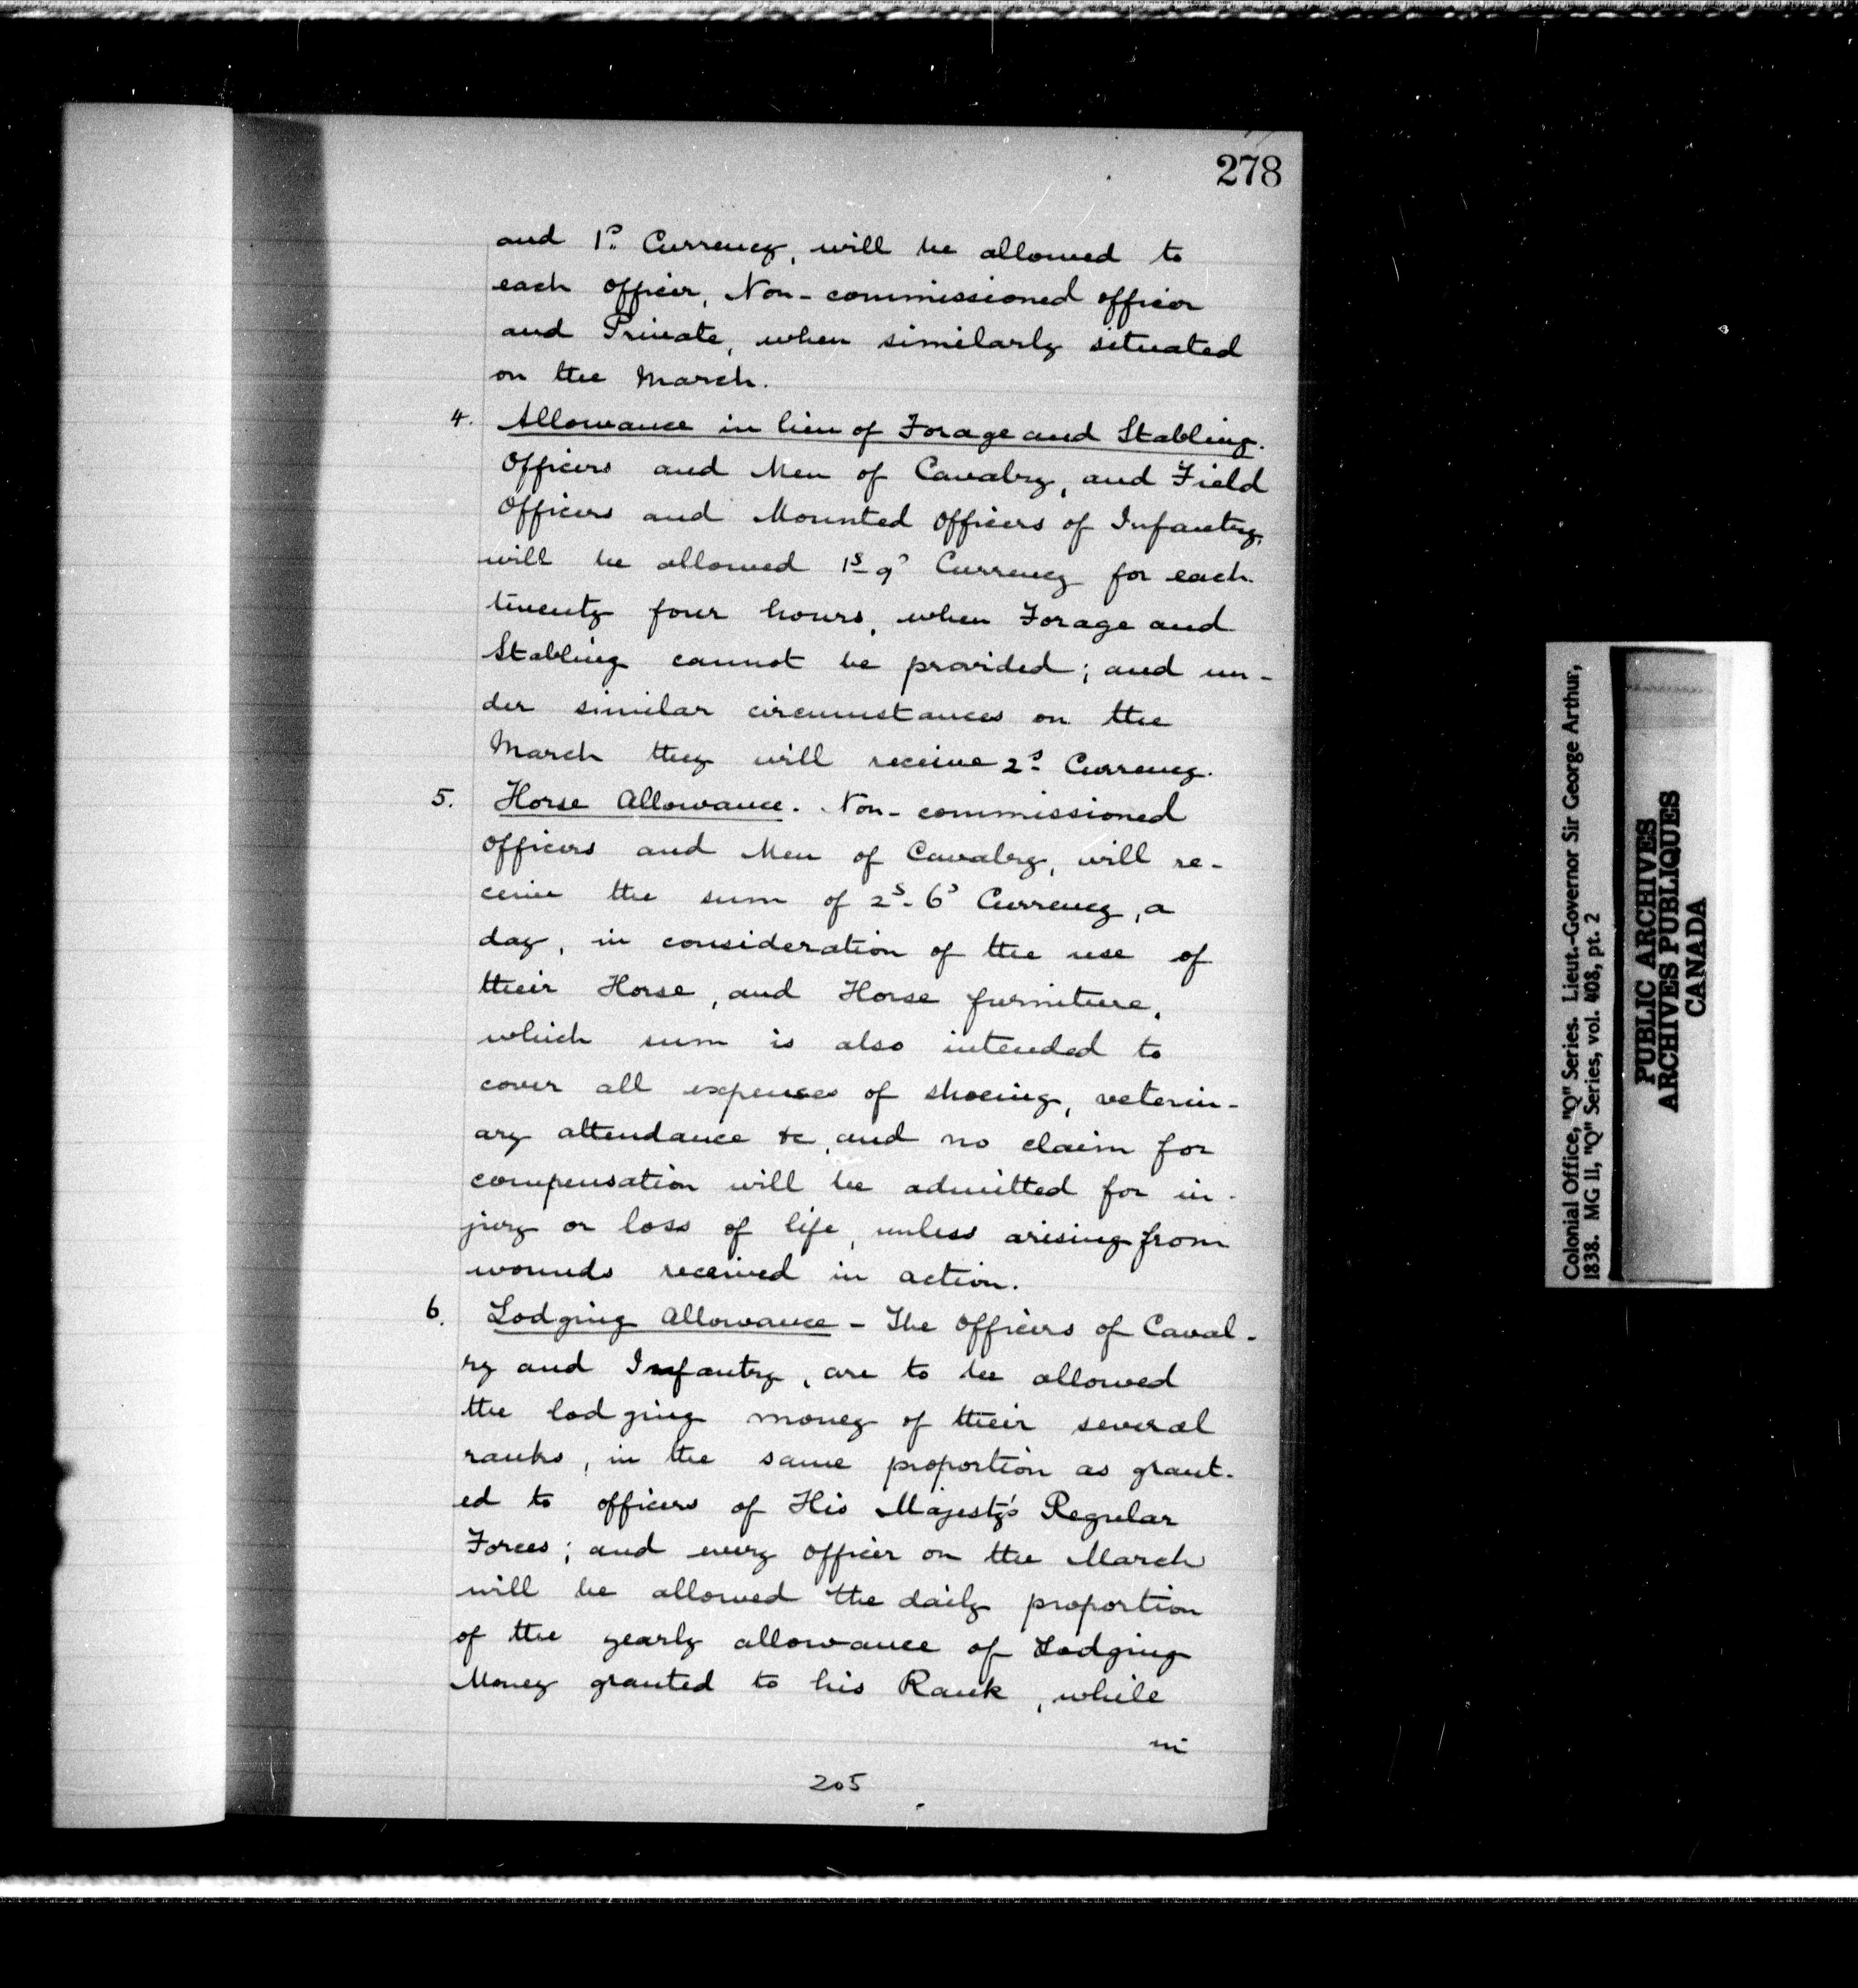 278
and 1s. Currency, will be allowed to
each officer, Non-commissioned officer
and Private, when similarly situated
on the March.
4. Allowance in lieu of Forage and Stabling.
Officers and Men of Cavalry, and Field
Officers and Mounted Officers of Infantry,
will be allowed 1s 9d Currency for each
twenty four hours, when Forage and
Stabling cannot be provided; and un-
der similar circumstances on the
March they will receive 2s. Currency.
5. Horse Allowance. Non-commissioned
Officers and Men of Cavalry, will re-
ceive the sum of 2s. 6d Currency, a
day, in consideration of the use of
their Horse, and Horse furniture,
which sum is also intended to
cover all expenses of shoeing, veterin-
ary attendance &c, and no claim for
compensation will be admitted for in-
jury or loss of life, unless arising from
wounds received in action.
6. Lodging Allowance - The Officers of Caval-
ry and Infantry, are to be allowed
the lodging money of their several
ranks, in the same proportion as grant-
ed to officers of His Majesty's Regular
Forces; and every officer on the March
will be allowed the daily proportion
of the yearly allowance of Lodging
Money granted to his Rank, while
in
205
Colonial Office, "Q" Series. Lieut.-Governor Sir George Arthur,
1838. MG 11, "Q" Series, vol. 408, pt. 2
PUBLIC ARCHIVES
ARCHIVES PUBLIQUES
CANADA